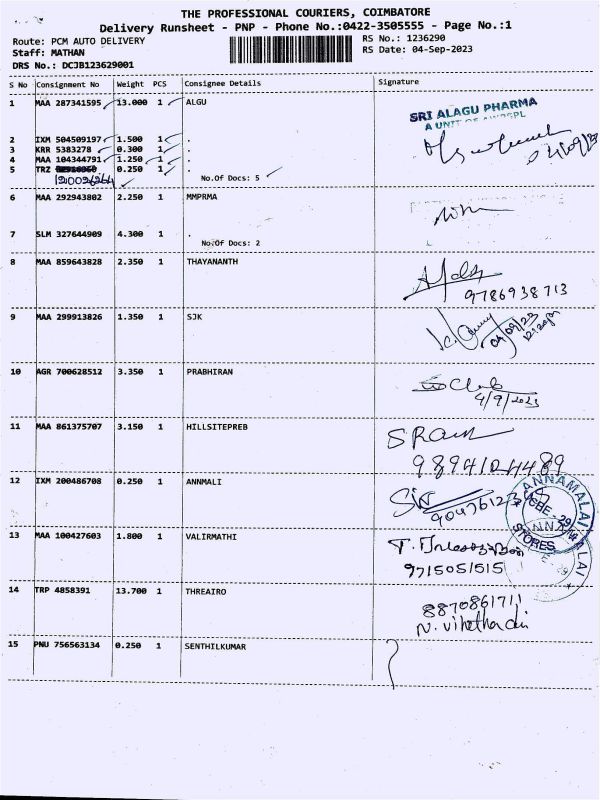 THE PROFESSIONAL COURIERS, COIMBATORE
Delivery Runsheet - PNP - Phone No.:0422-3505555 - Page No.:1
Route: PCM AUTO DELIVERY RS No.: 1236290
Staff: MATHAN RS Date: 04-Sep-2023
DRS No.: DCJB123629001
S No Consignment No Weight PCS Consignee Details Signature
1 MAA 287341595 13.000 1 ALGU
SRI ALAGU PHARMA
A UNIT OF
2 IXM 504509197 1.500 1 .
3 KRR 5383278 0.300 1 .
4 MAA 104344791 1.250 1 . 04/09/23
5 TRZ 0.250 1 .
120026264 No.Of Docs: 5
6 MAA 292943802 2.250 1 MMPRMA
7 SLM 327644909 4.300 1 .
No.Of Docs: 2
8 MAA 859643828 2.350 1 THAYANANTH
9786938713
9 MAA 299913826 1.350 1 SJK
04/09/23
10 AGR 700628512 3.350 1 PRABHIRAN
4/9/2023
11 MAA 861375707 3.150 1 HILLSITEPREB
SRam
12 IXM 200486708 0.250 1 ANNMALI
ANNAMALAI
STORES
13 MAA 100427603 1.800 1 VALIRMATHI
9715051515
14 TRP 4858391 13.700 1 THREAIRO
8870861711
15 PNU 756563134 0.250 1 SENTHILKUMAR